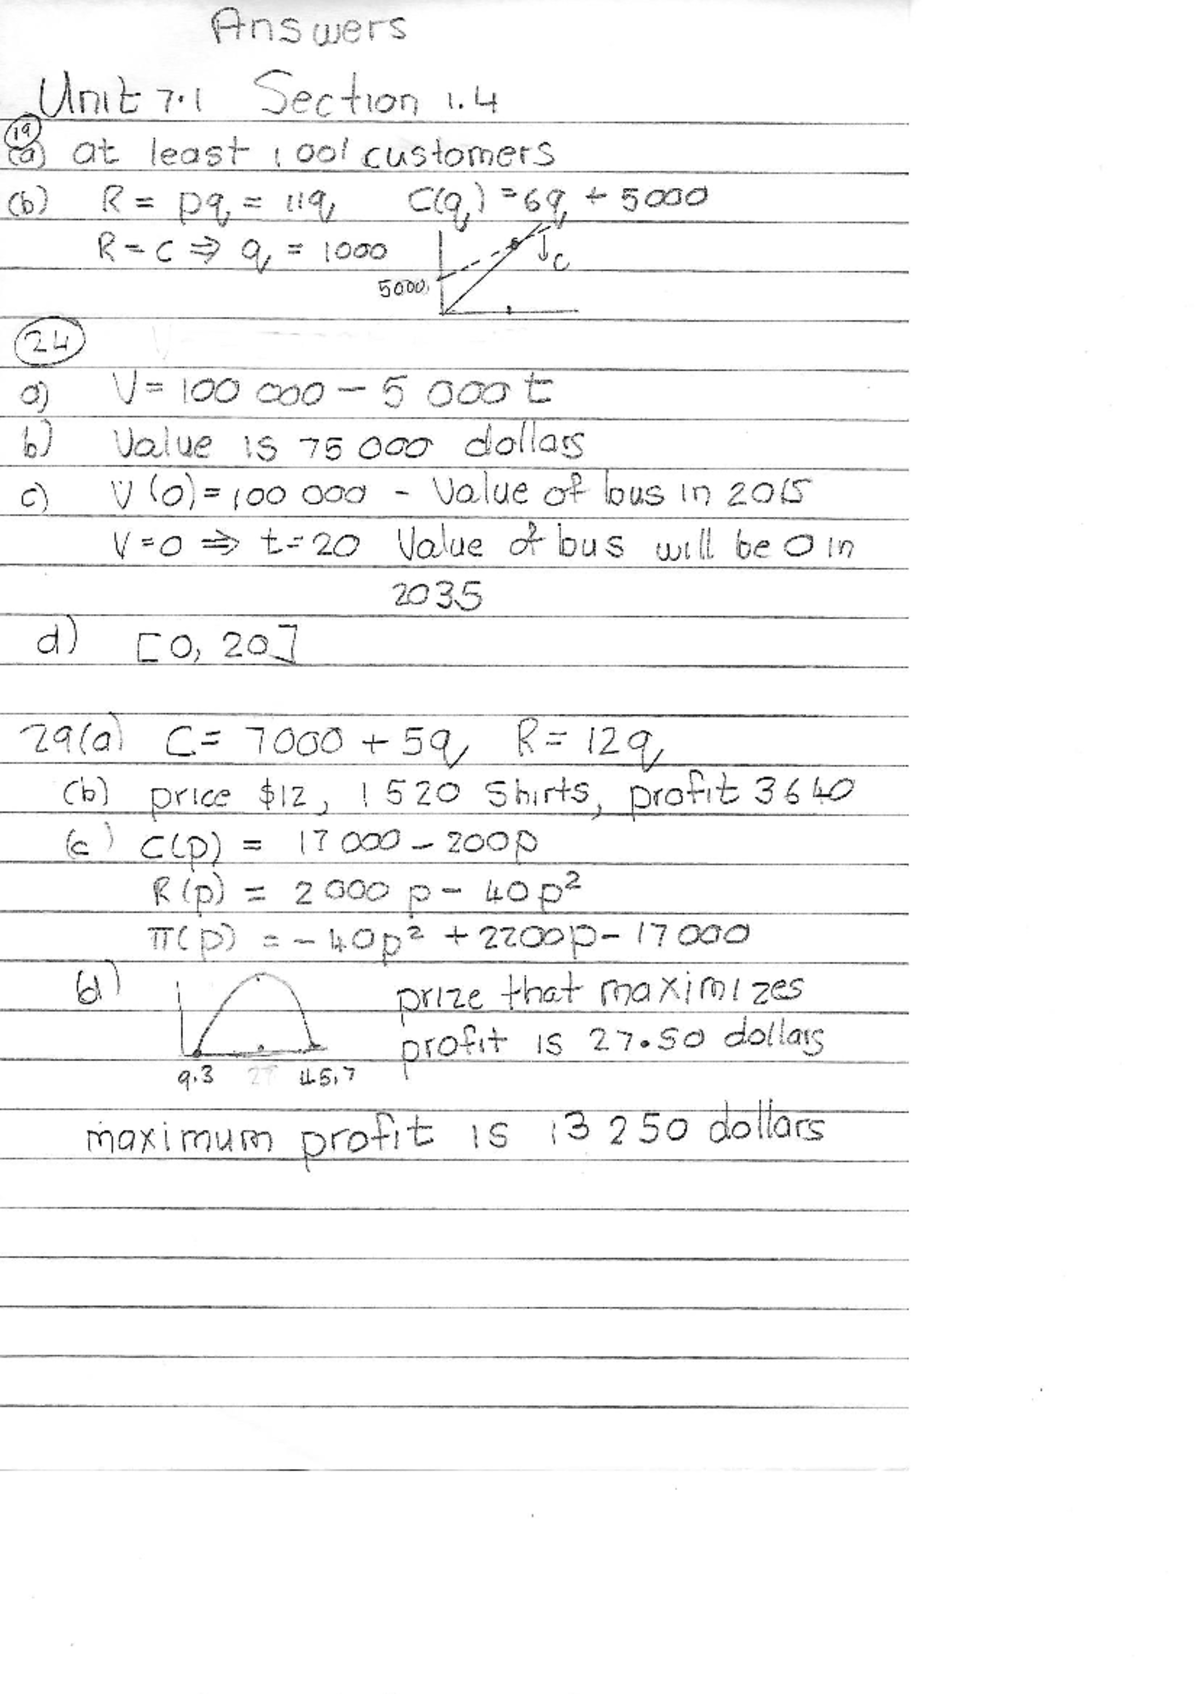 Answers
Unit 7.1 Section 1.4
19
(a) at least 1 001 customers
(b) R = pq = 11q C(q) = 6q + 5000
R = C ⇒ q = 1000
C
5000
24
a) V = 100 000 - 5 000 t
b) Value is 75 000 dollars
c) V(0) = 100 000 - Value of bus in 2015
V = 0 ⇒ t = 20 Value of bus will be 0 in
2035
d) [0, 20]
29(a) C = 7000 + 5q R = 12q
(b) price $12, 1520 Shirts, profit 3640
(c) C(p) = 17 000 - 200p
R(p) = 2000 p - 40p²
π(p) = -40p² + 2200p - 17 000
(d) prize that maximizes
profit is 27.50 dollars
9.3 45.7
maximum profit is 13 250 dollars